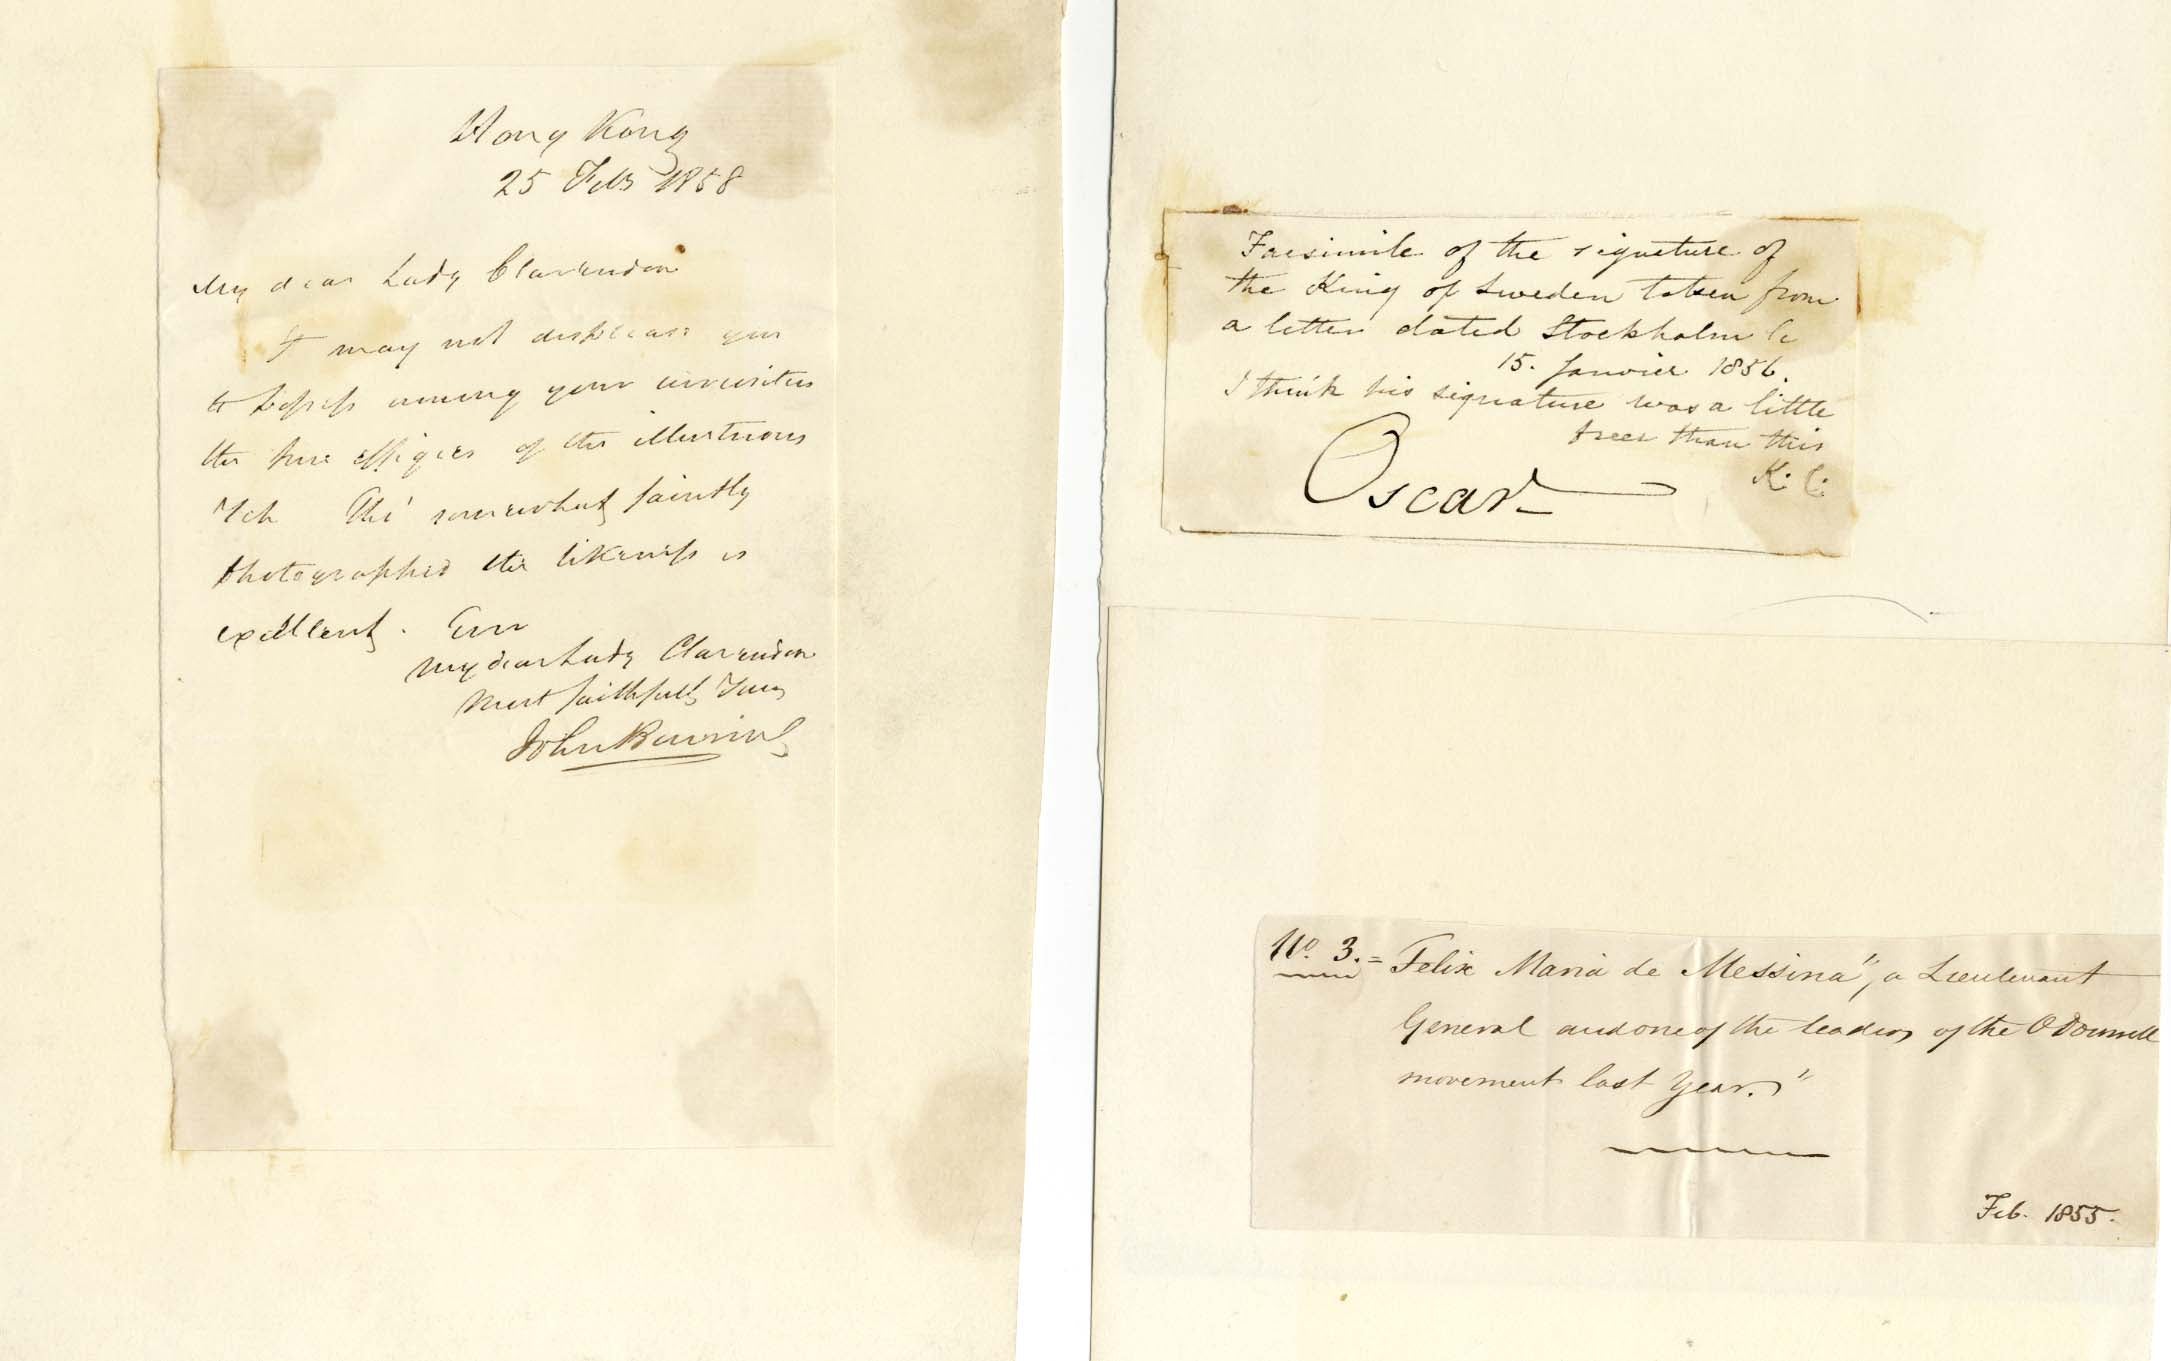 Hong Kong
25 Feb 1858
My dear Lady Clarendon
It may not displease you
to possess among your curiosities
the true effigies of the illustrious
Yeh Tho' somewhat faintly
photographed the likeness is
excellent. Ever
my dear Lady Clarendon
Most faithfully Yours
John Bowring
Facsimile of the signature of
the King of Sweden taken from
a letter dated Stockholm le
15. Janvier 1856.
I think his signature was a little
freer than this
K. C.
Oscar
No. 3. = Felix Maria de Messina", a Lieutenant
General and one of the leaders of the O'Donnell
movement last year."
Feb. 1855.